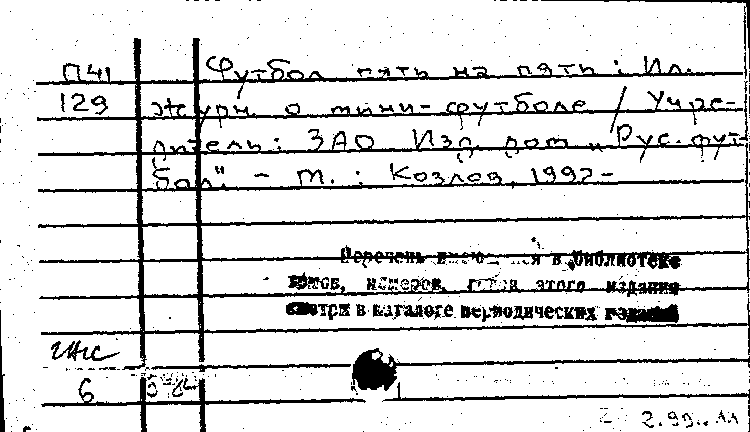 П41 Футбол пять на пять : Ил.
129 журн. о мини-футболе / Учре-
дитель: ЗАО Изд. дом „Рус. фут-
бол". - М. : Козлов, 1997-
Перечень имеющихся в библиотеке
томов, номеров, годов этого издания
смотри в каталоге периодических изданий
6
2.99..